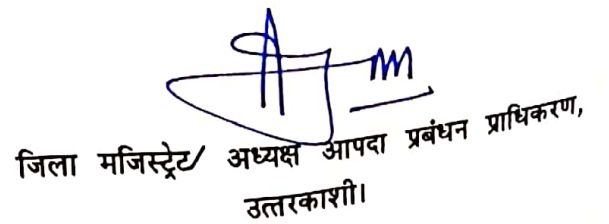 जिला मजिस्ट्रेट/ अध्यक्ष आपदा प्रबंधन प्राधिकरण,
उत्तरकाशी।